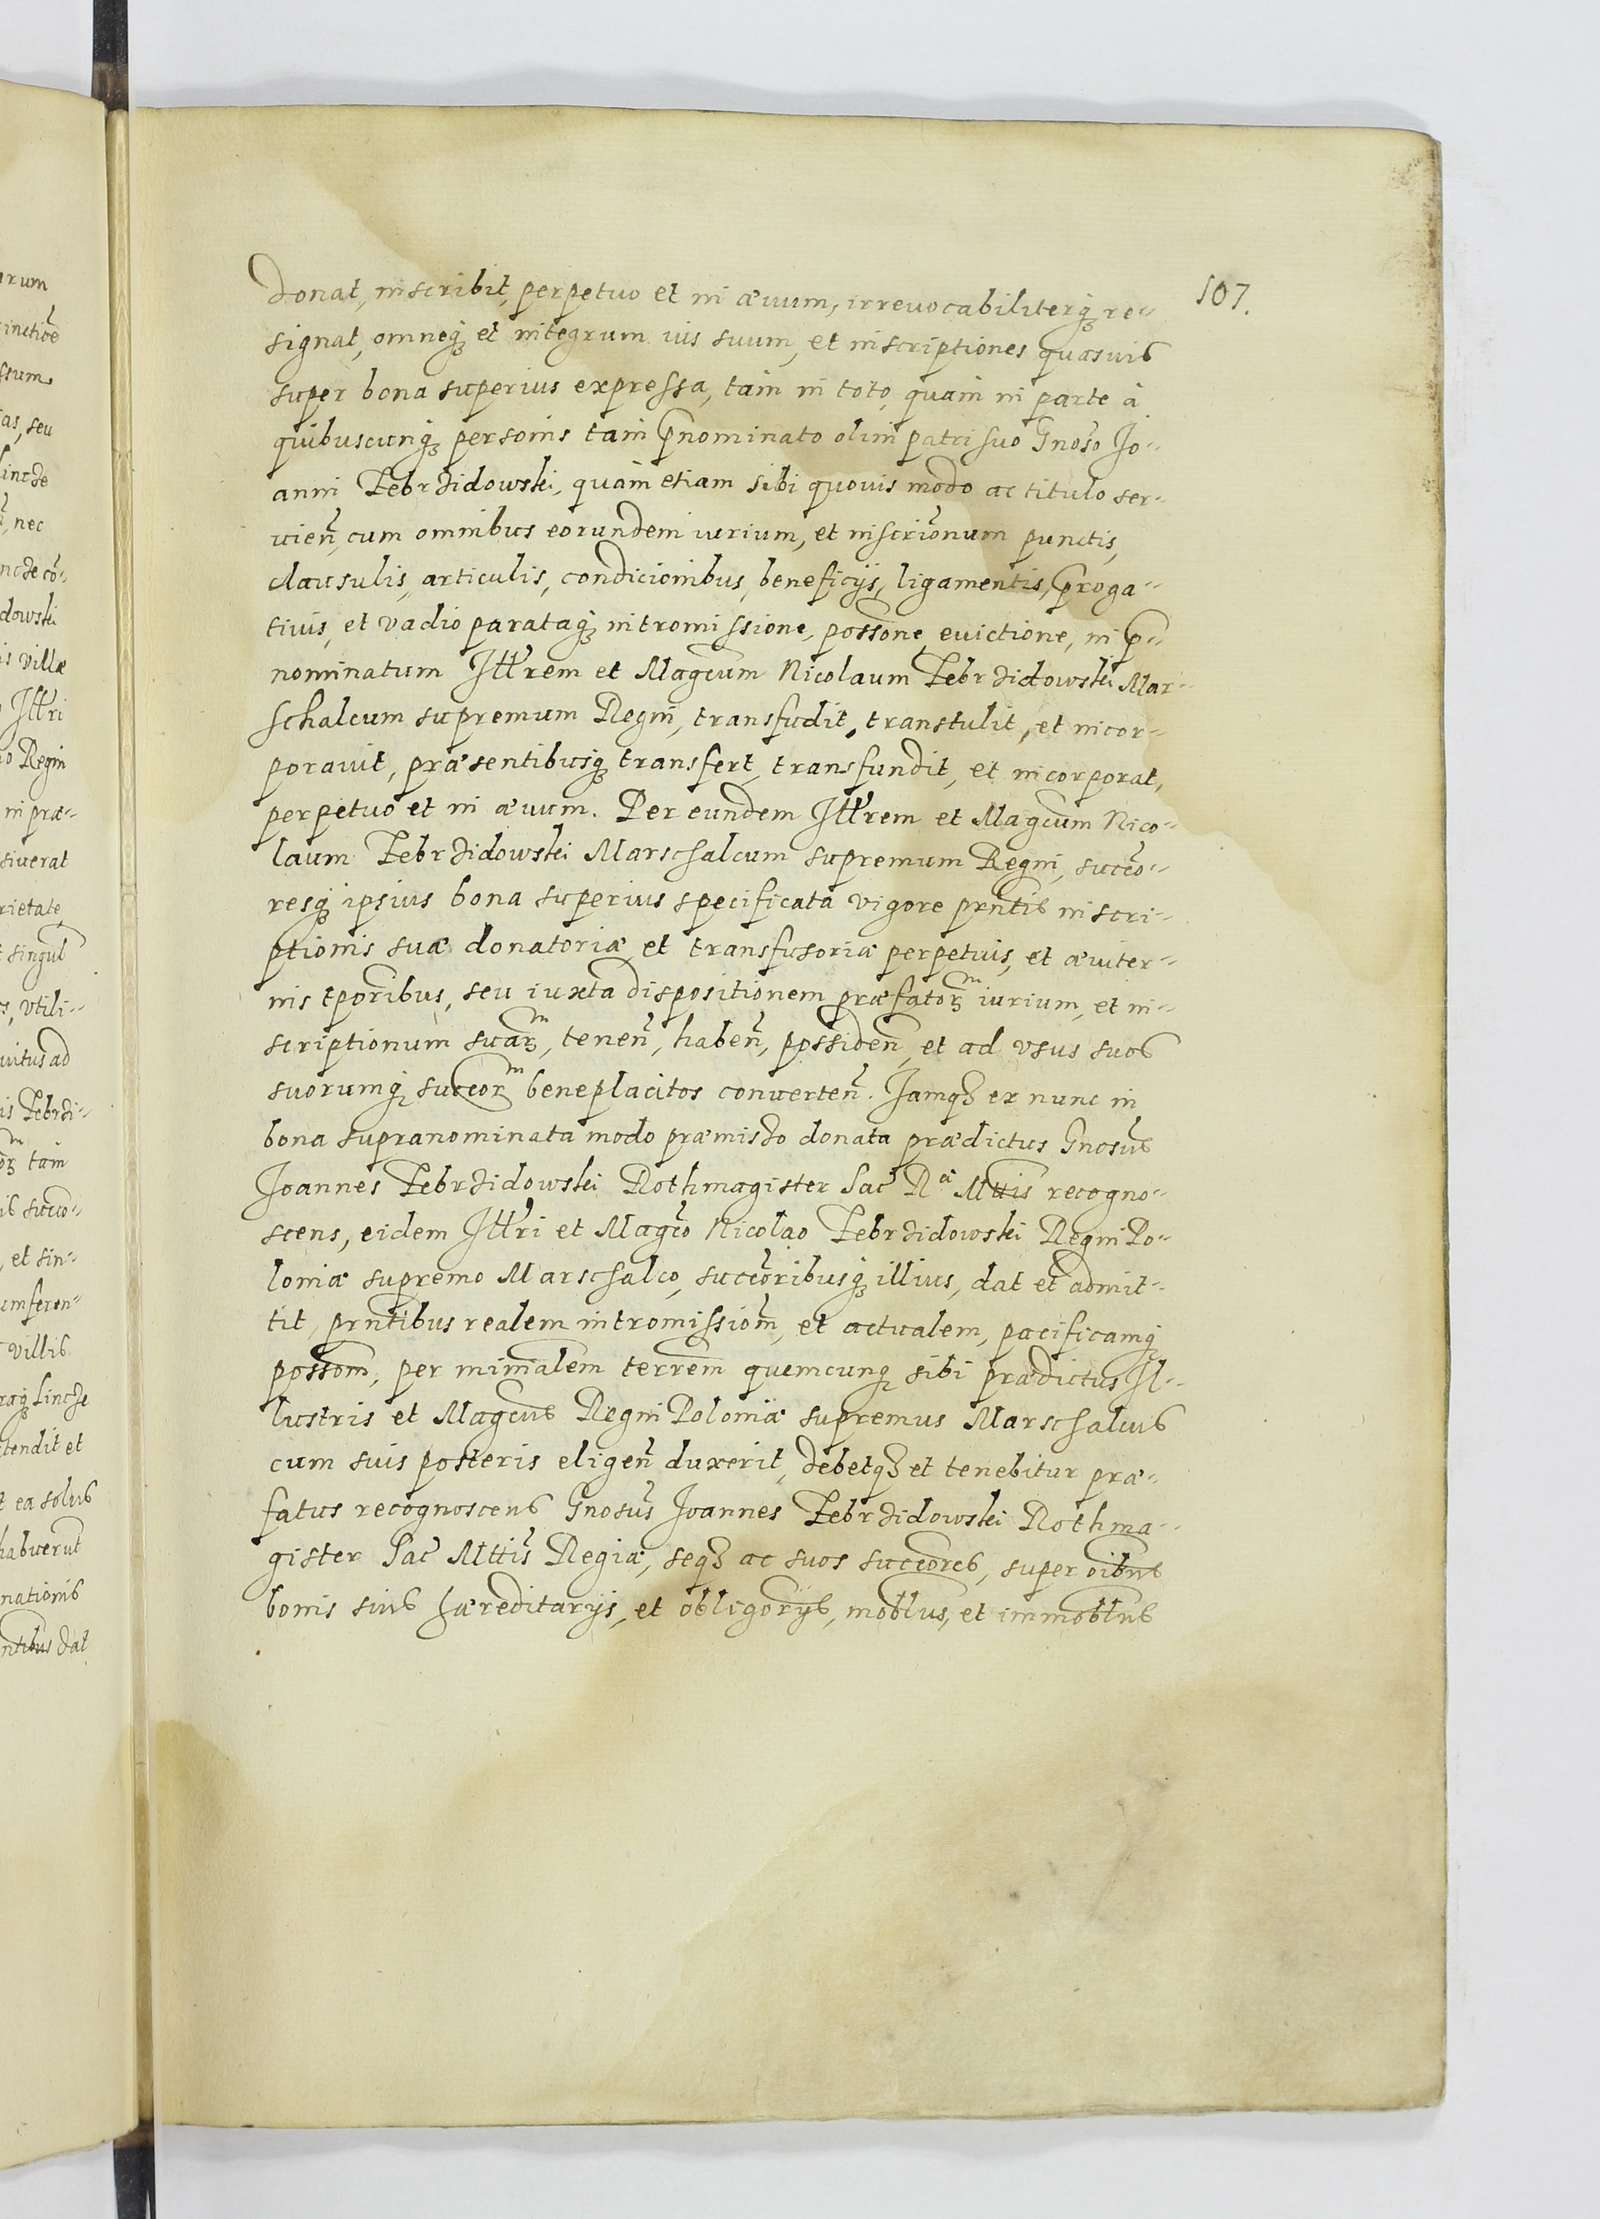 107.
donat, inscribit, perpetuo et in ævum, irrevocabiliterq́ꝫ re-
signat, omneq́ꝫ et integrum ius suum, et inscriptiones quasuis
super bona superius expressa, tam in toto, quam in parte à
quibuscunq́ꝫ personis tam p̄nominato olim patri suo Gnoso Jo-
anni Zebrzidowski, quam etiam sibi quouis modo ac titulo ser-
uien̄, cum omnibus eorundem iurium, et inscriōnum punctis,
clausulis, articulis, condicionibus, beneficijs, ligamentis, p̄roga-
tiuis, et vadio parataq́ꝫ intromissione, possone, euictione, in p̄-
nominatum Jllrem et Magcum Nicolaum Zebrzidowski Mar-
schalcum supremum Regni, transfudit, transtulit, et incor-
porauit, præsentibusq́ꝫ transfert, transfundit, et incorporat,
perpetuo et in ævum. Per eundem Jllrem et Magcum Nico-
laum Zebrzidowski Marschalcum supremum Regni, succo-
resq́ꝫ ipsius bona superius specificata vigore prntis inscri-
ptionis suæ donatoriæ et transfusoriæ perpetuis, et æuiter-
nis tporibus, seu iuxta dispositionem præfatoꝝm iurium, et in-
scriptionum suaꝝm, tenen̄, haben̄, possiden̄, et ad vsus suos
suorumq́ꝫ succorm beneplacitos conuerten̄. Jamqꝫ ex nunc in
bona supranominata modo præmisso donata prædictus Gnosus
Joannes Zebrzidowski Rothmagister Sac̄ Rᵃ Mttis recogno-
scens, eidem Jllri et Magco Nicolao Zebrzidowski Regni Po-
loniæ supremo Marschalco, succoribusq́ꝫ illius, dat et admit-
tit, prntibus realem intromissiom̄, et actualem, pacificamq́ꝫ
possom̄, per minialem terrem quemcunq́ꝫ sibi prædictus Jl-
lustris et Magcus Regni Poloniæ supremus Marschalcus
cum suis posteris eligen̄ duxerit, debetqꝫ et tenebitur præ-
fatus recognoscens Gnosus Joannes Zebrzidowski Rothma-
gister Sac̄ Mttis Regiæ, seqꝫ ac suos succores, super oibus
bonis suis hæreditarijs, et obligorijs, moblus, et immoblus